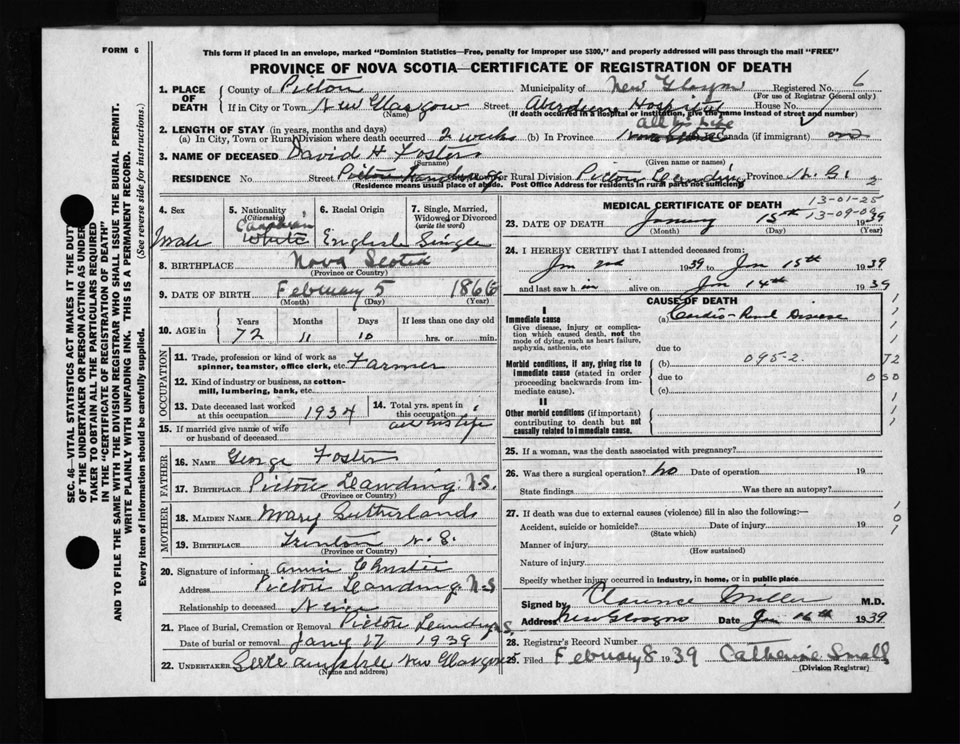 FORM 6
This form if placed in an envelope, marked "Dominion Statistics—Free, penalty for improper use $300," and properly addressed will pass through the mail "FREE"
PROVINCE OF NOVA SCOTIA—CERTIFICATE OF REGISTRATION OF DEATH
1. PLACE OF DEATH County of Pictou Municipality of New Glasgow Registered No. 6
(For use of Registrar General only)
If in City or Town New Glasgow Street Aberdeen Hospital House No.
(Name) (If death occurred in a hospital or institution, give the name instead of street and number)
2. LENGTH OF STAY (in years, months and days) all his life
(a) In City, Town or Rural Division where death occurred 2 weeks (b) In Province Canada (if immigrant)
3. NAME OF DECEASED David H Foster
(Surname) (Given name or names)
RESIDENCE No. Street Pictou Landing or Rural Division Pictou Landing Province N. S. 2
(Residence means usual place of abode. Post Office Address for residents in rural parts not sufficient)
4. Sex Male
5. Nationality (Citizenship) Canadian White
6. Racial Origin English
7. Single, Married, Widowed or Divorced (write the word) Single
8. BIRTHPLACE Nova Scotia
(Province or Country)
9. DATE OF BIRTH February 5 1866
(Month) (Day) (Year)
10. AGE in Years 72 Months 11 Days 10 If less than one day old hrs. or min.
OCCUPATION
11. Trade, profession or kind of work as spinner, teamster, office clerk, etc. Farmer
12. Kind of industry or business, as cotton-mill, lumbering, bank, etc.
13. Date deceased last worked at this occupation 1934
14. Total yrs. spent in this occupation all his life
15. If married give name of wife or husband of deceased
FATHER
16. NAME George Foster
17. BIRTHPLACE Pictou Landing N.S.
(Province or Country)
MOTHER
18. MAIDEN NAME Mary Sutherland
19. BIRTHPLACE Trenton N. S.
(Province or Country)
20. Signature of informant Annie Christie
Address Pictou Landing N.S
Relationship to deceased Niece
21. Place of Burial, Cremation or Removal Pictou Landing N.S.
Date of burial or removal Jany 17 1939
22. UNDERTAKER New Glasgow
(Name and address)
MEDICAL CERTIFICATE OF DEATH
13-01-25
13-09-09
23. DATE OF DEATH January 15th 1939
(Month) (Day) (Year)
24. I HEREBY CERTIFY that I attended deceased from:
Jan 2nd 1939 to Jan 15th 1939
and last saw him alive on Jan 14th 1939
CAUSE OF DEATH
I
Immediate cause (a) Cardio-Renal Disease
Give disease, injury or complication which caused death, not the mode of dying, such as heart failure, asphyxia, asthenia, etc due to
Morbid conditions, if any, giving rise to immediate cause (stated in order proceeding backwards from immediate cause). (b) 095-2. due to (c)
72
050
II
Other morbid conditions (if important) contributing to death but not causally related to immediate cause.
25. If a woman, was the death associated with pregnancy?
26. Was there a surgical operation? No Date of operation 19
State findings Was there an autopsy?
27. If death was due to external causes (violence) fill in also the following:—
Accident, suicide or homicide? Date of injury 19
(State which)
Manner of injury
(How sustained)
Nature of injury
Specify whether injury occurred in industry, in home, or in public place
Signed by Clarence Miller M.D.
Address New Glasgow Date Jan 16th 1939
28. Registrar's Record Number
29. Filed February 8 1939 Catherine Small
(Division Registrar)
SEC. 46—VITAL STATISTICS ACT MAKES IT THE DUTY
OF THE UNDERTAKER OR PERSON ACTING AS UNDERTAKER TO OBTAIN ALL THE PARTICULARS REQUIRED
IN THE "CERTIFICATE OF REGISTRATION OF DEATH"
AND TO FILE THE SAME WITH THE DIVISION REGISTRAR WHO SHALL ISSUE THE BURIAL PERMIT.
WRITE PLAINLY WITH UNFADING INK. THIS IS A PERMANENT RECORD.
Every item of information should be carefully supplied. (See reverse side for instructions.)